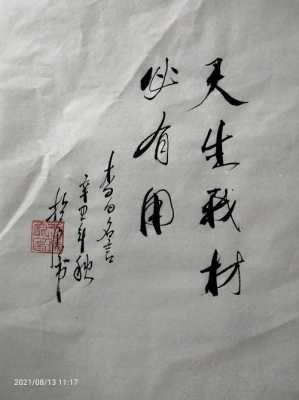 天生我材
必有用
李白名言
辛丑年秋
书
2021/08/13 11:17